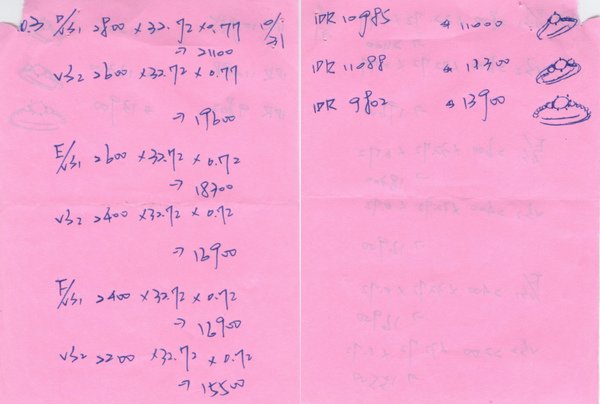 0.3 D/VS1 2800 × 32.72 × 0.77 10/31
→ 21100
VS2 2600 × 32.72 × 0.77
→ 19600
E/VS1 2600 × 32.72 × 0.72
→ 18300
VS2 2400 × 32.72 × 0.72
→ 16900
F/VS1 2400 × 32.72 × 0.72
→ 16900
VS2 2200 × 32.72 × 0.72
→ 15500
IDR 10985 → 11000
IDR 11088 →
IDR 9802 → 13900